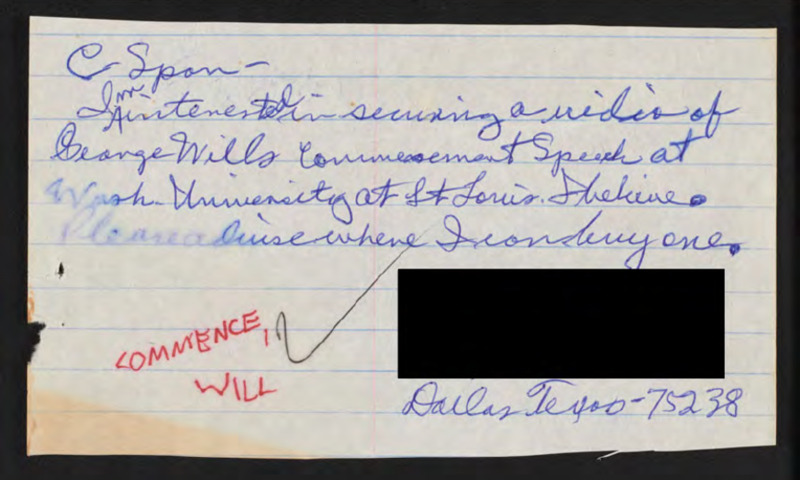 C-Span-
I'm interested in securing a video of
George Wills Commencement Speech at
Wash. University at St Louis. I believe.
Please advise where I can buy one.
COMMENCE,
WILL
Dallas Texas-75238